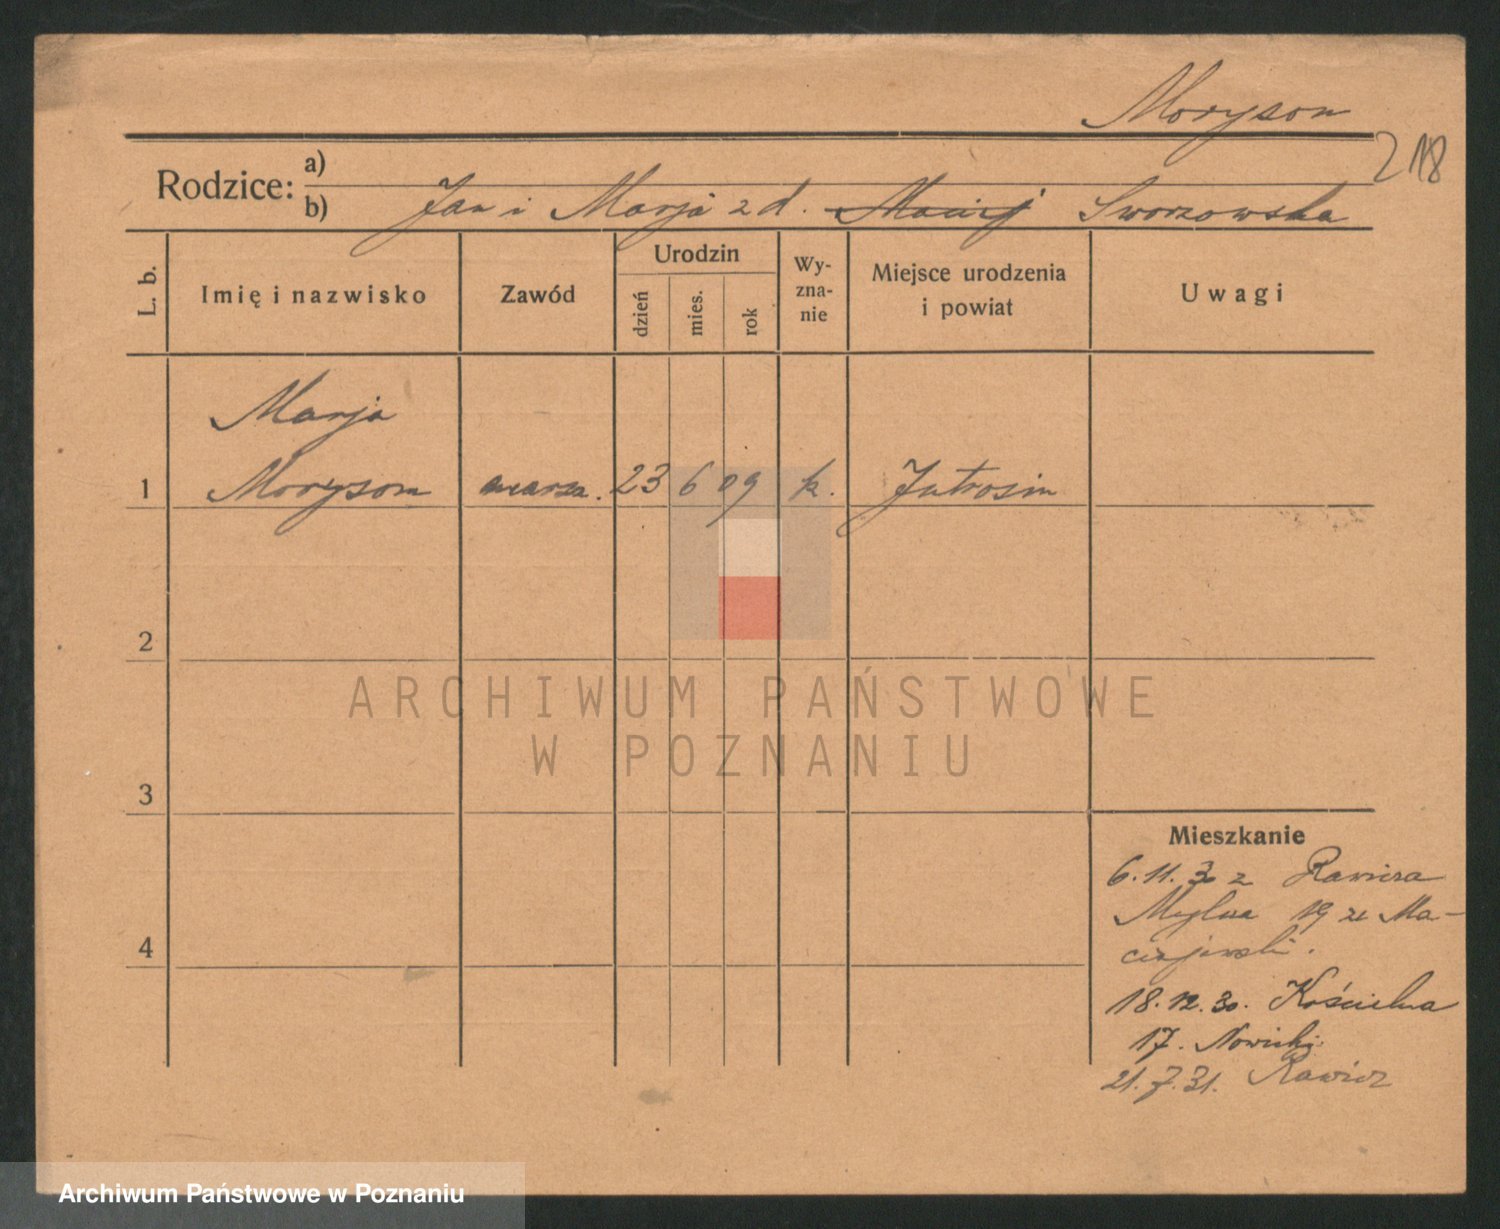 Moryson
218
Rodzice: a)
b) Jan i Marja z d. Maciej Sworzowska
L. b.
Imię i nazwisko
Zawód
Urodzin
dzień
mies.
rok
Wy-
zna-
nie
Miejsce urodzenia
i powiat
Uwagi
Marja
1 Moryson 23 6 09 k. Jutrosin
2
3
4
Mieszkanie
6.11.30 z Rawicza
19 u Ma-
ciejewski.
18.12.30. Kościelna
17. Nowicki
21.7.31. Rawicz
ARCHIWUM PAŃSTWOWE
W POZNANIU
Archiwum Państwowe w Poznaniu